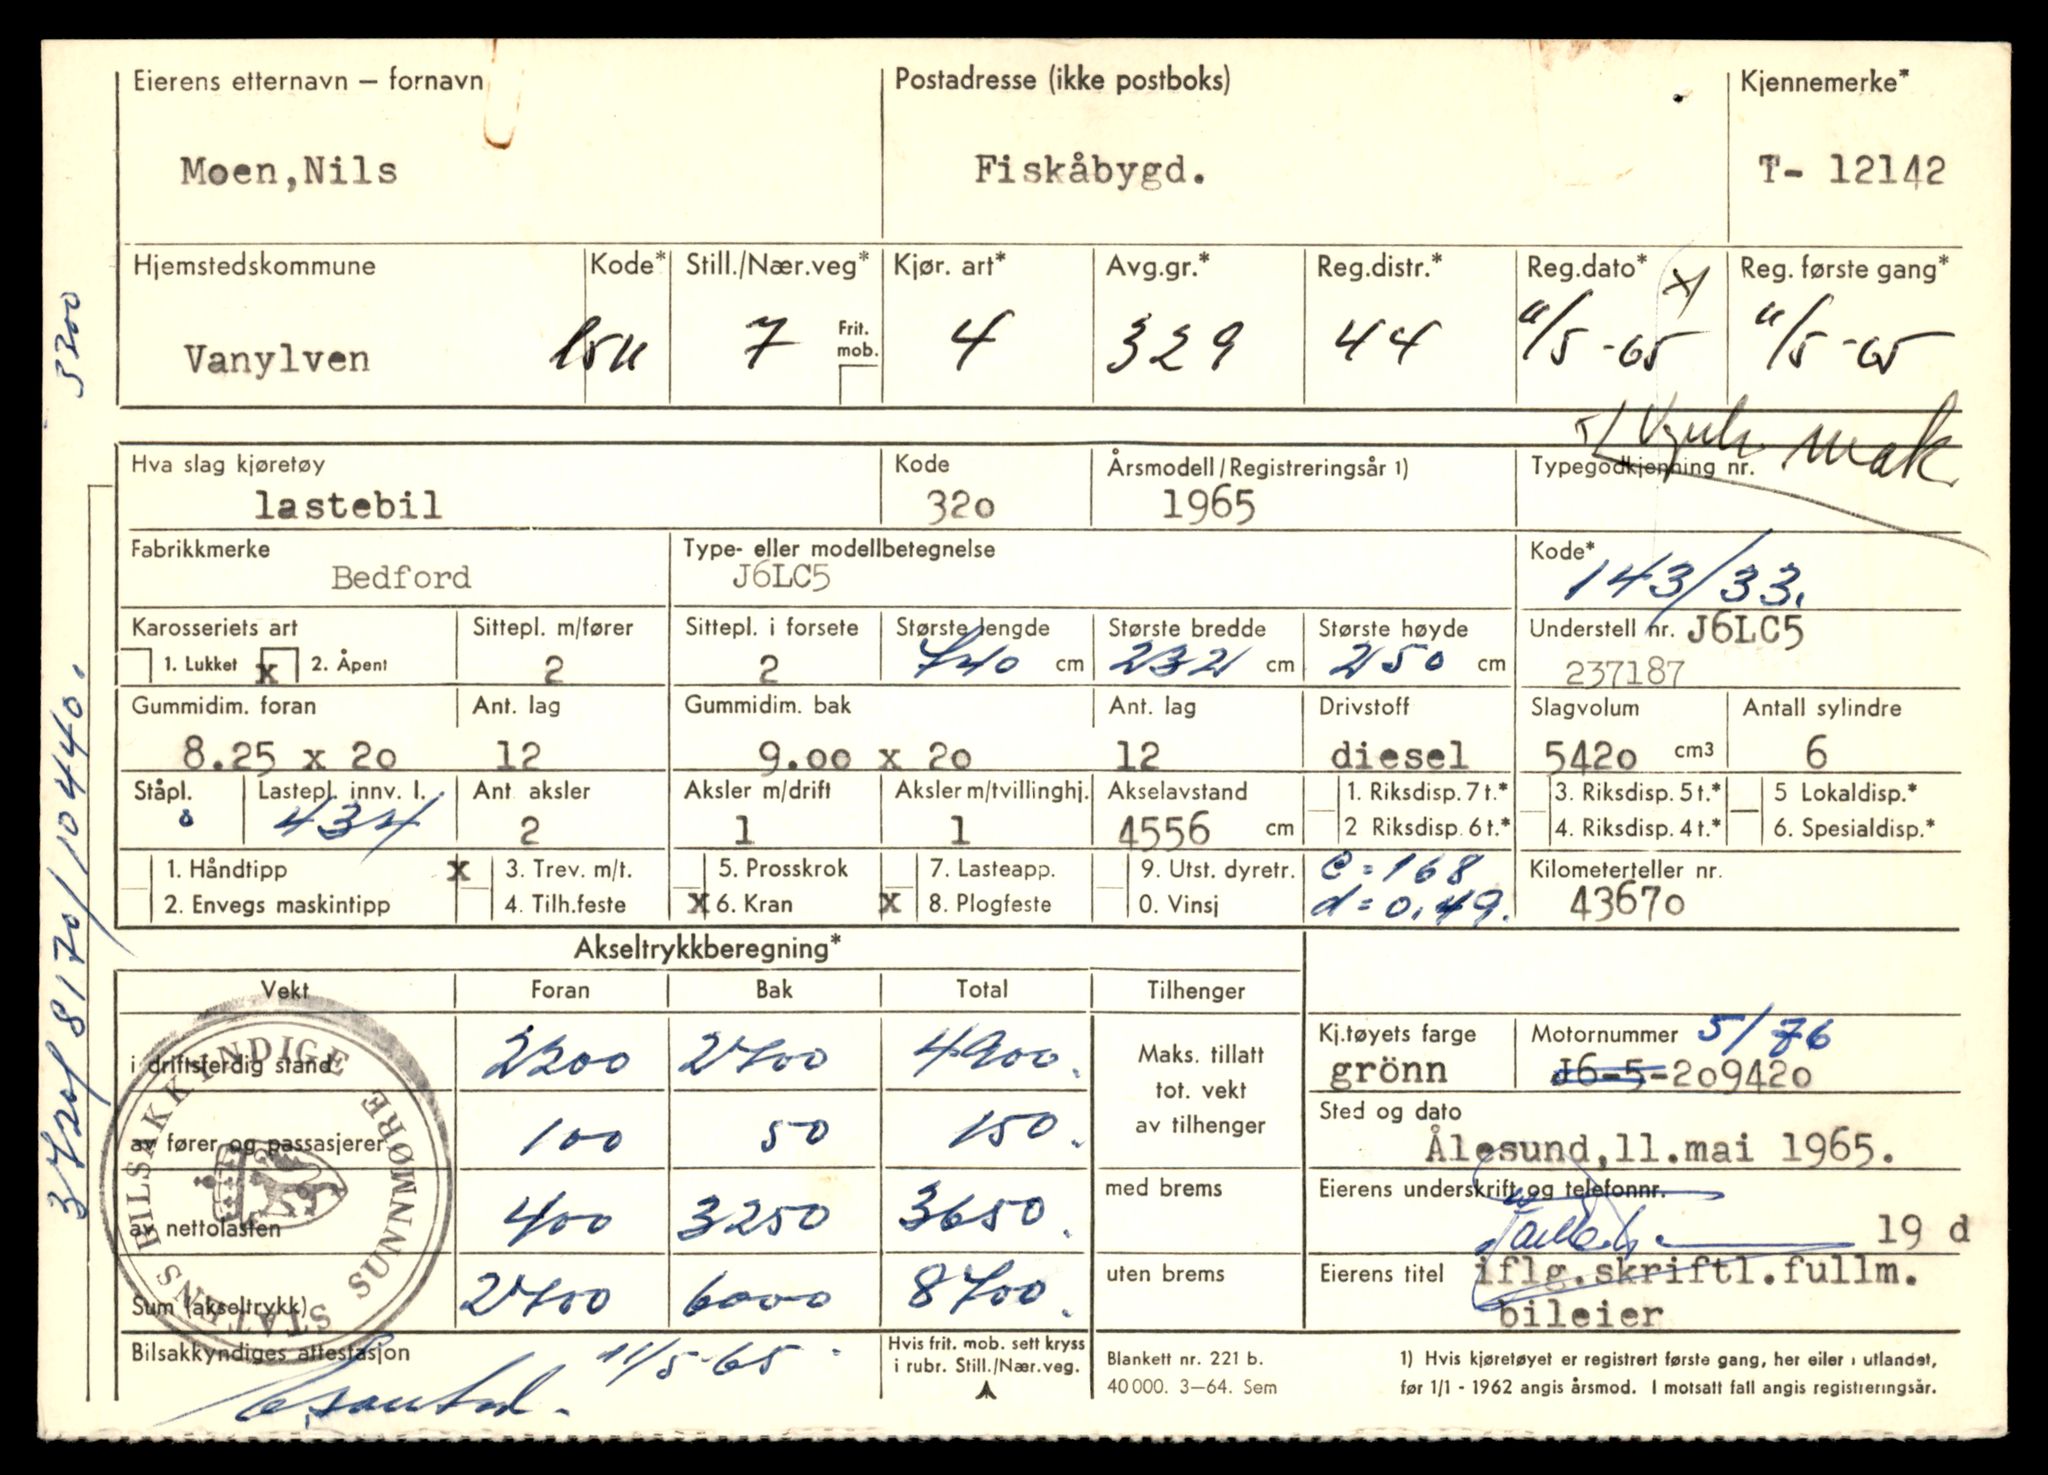 Eierens etternavn – fornavn Postadresse (ikke postboks) Kjennemerke*
Moen,Nils Fiskåbygd. T- 12142
Hjemstedskommune Kode* Still./Nær.veg* Kjør. art* Avg.gr.* Reg.distr.* Reg.dato* x) Reg. første gang*
Vanylven 1511 7 Frit. mob. 4 329 44 11/5-65 11/5-65
mak
Hva slag kjøretøy Kode Årsmodell/Registreringsår 1) Typegodkjenning nr.
lastebil 320 1965
Fabrikkmerke Type- eller modellbetegnelse Kode*
Bedford J6LC5 143/33.
Karosseriets art Sittepl. m/fører Sittepl. i forsete Største lengde Største bredde Største høyde Understell nr. J6LC5
1. Lukket x 2. Åpent 2 2 740 cm 232 cm 250 cm 237187
Gummidim. foran Ant. lag Gummidim. bak Ant. lag Drivstoff Slagvolum Antall sylindre
8.25 x 20 12 9.00 x 20 12 diesel 5420 cm3 6
Ståpl. Lastepl. innv. l. Ant. aksler Aksler m/drift Aksler m/tvillinghj. Akselavstand 1. Riksdisp. 7 t.* 3. Riksdisp. 5 t.* 5 Lokaldisp.*
0 434 2 1 1 4556 cm 2 Riksdisp. 6 t.* 4. Riksdisp. 4 t.* 6. Spesialdisp.*
1. Håndtipp x 3. Trev. m/t. 5. Prosskrok 7. Lasteapp. 9. Utst. dyretr. c=168 Kilometerteller nr.
2. Envegs maskintipp 4. Tilh.feste x 6. Kran x 8. Plogfeste 0. Vinsj d=0,49. 43670
Akseltrykkberegning*
Vekt Foran Bak Total Tilhenger
i driftsferdig stand 2200 2700 4900. Maks. tillatt tot. vekt av tilhenger Kj.tøyets farge Motornummer 5/76
grönn J6-5-209420
av fører og passasjerer 100 50 150. Sted og dato
Ålesund,11.mai 1965.
av nettolasten 400 3250 3650. med brems Eierens underskrift og telefonnr.
19 d
Sum (akseltrykk) 2700 6000 8700. uten brems Eierens titel iflg.skriftl.fullm.
bileier
Bilsakkyndiges attestasjon 11/5-65. Hvis frit. mob. sett kryss i rubr. Still./Nær.veg. Blankett nr. 221 b. 1) Hvis kjøretøyet er registrert første gang, her eller i utlandet,
40 000. 3–64. Sem før 1/1 - 1962 angis årsmod. I motsatt fall angis registreringsår.
STATENS BILSAKKYNDIGE SUNNMØRE
3200
3720/8170/10440.